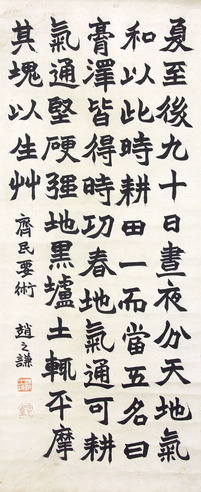 夏至後九十日晝夜分天地氣
和以此時耕田一而當五名曰
膏澤皆得時功春地氣通可耕
氣通堅硬強地黑壚土輒平摩
其塊以生艸 齊民要術 趙之謙